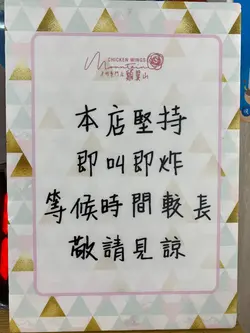 CHICKEN WINGS
Mountain
本店堅持
即叫即炸
等候時間較長
敬請見諒